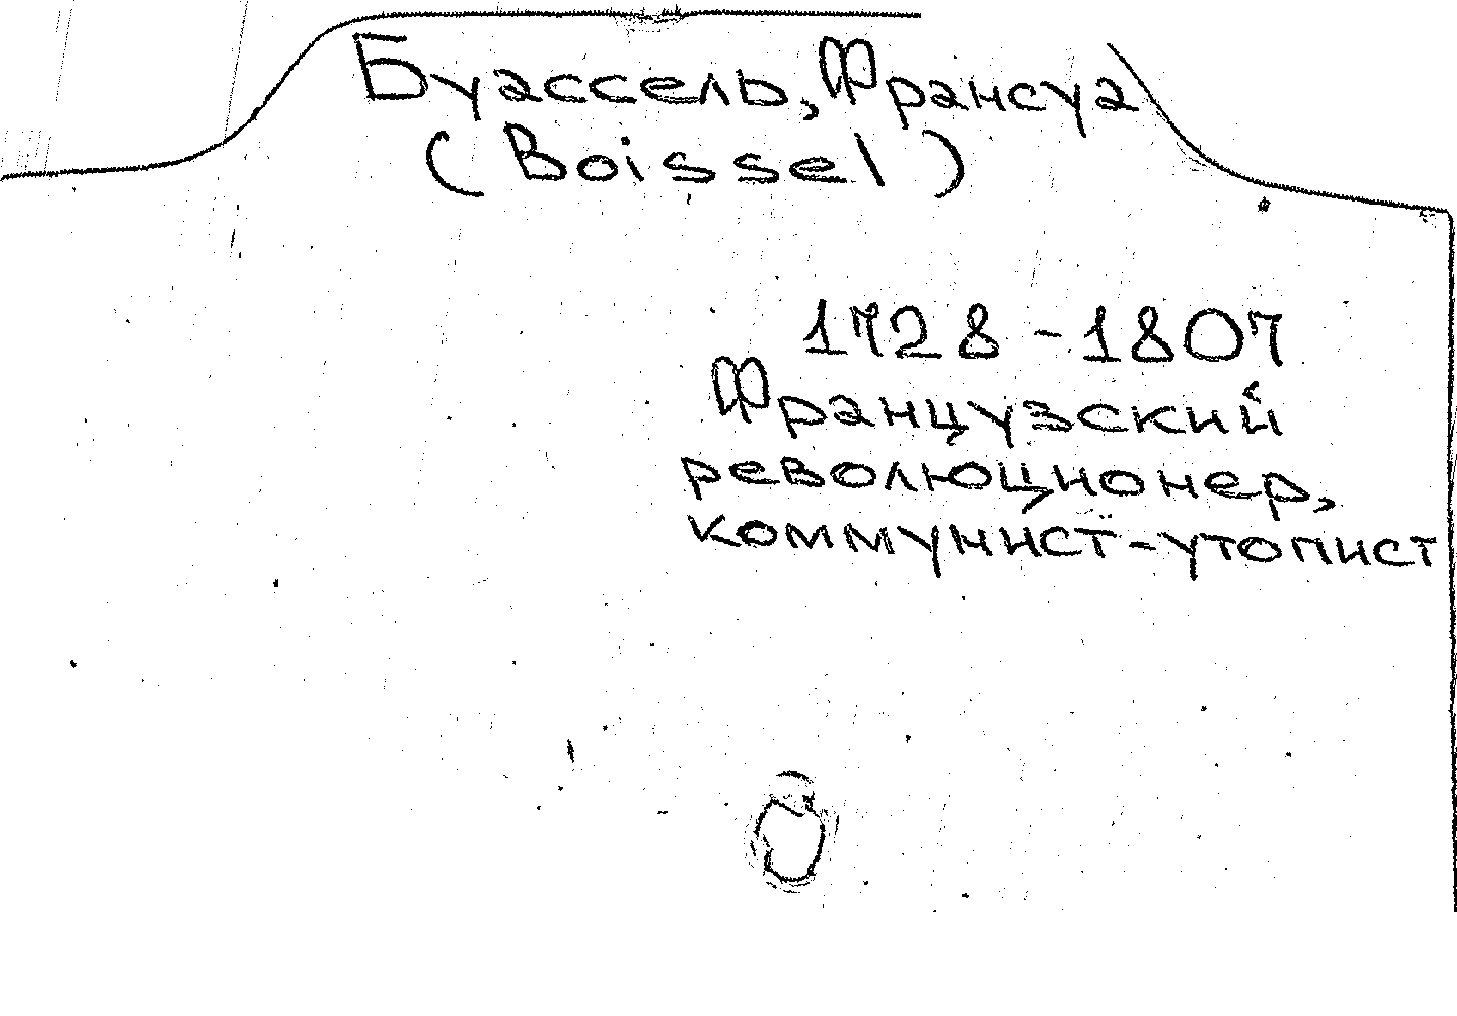 Буассель, Франсуа
(Boissel)
1728-1807
Французский
революционер,
коммунист-утопист